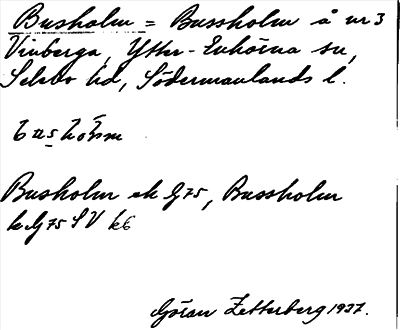 Busholm = Bussholm å nr 3
Vinberga, Ytter-Enhörna sn,
Selebo hd, Södermanlands l.
Busholm ek G75, Bussholm
k G75 SV k6
Göran Zetterberg 1937.